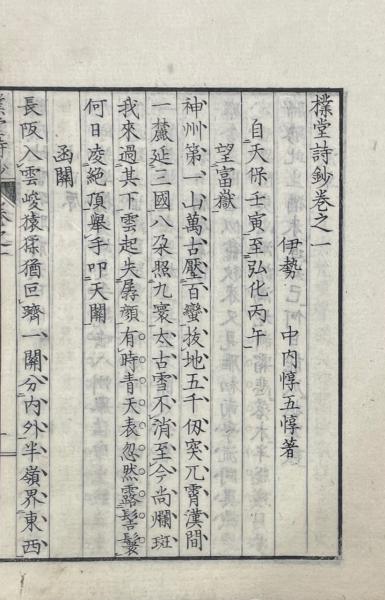 樸堂詩鈔卷之一
伊勢 中內惇五惇著
自天保壬寅至弘化丙午
望富嶽
神州第一山萬古壓百蠻拔地五千仞突兀霄漢間
一麓延三國八朶照九寰太古雪不消至今尚爛斑
我來過其下雲起失孱顏有時青天表忽然露髻鬟
何日凌絕頂舉手叩天關
函關
長阪入雲峻猿猱猶回躋一關分內外半嶺界東西